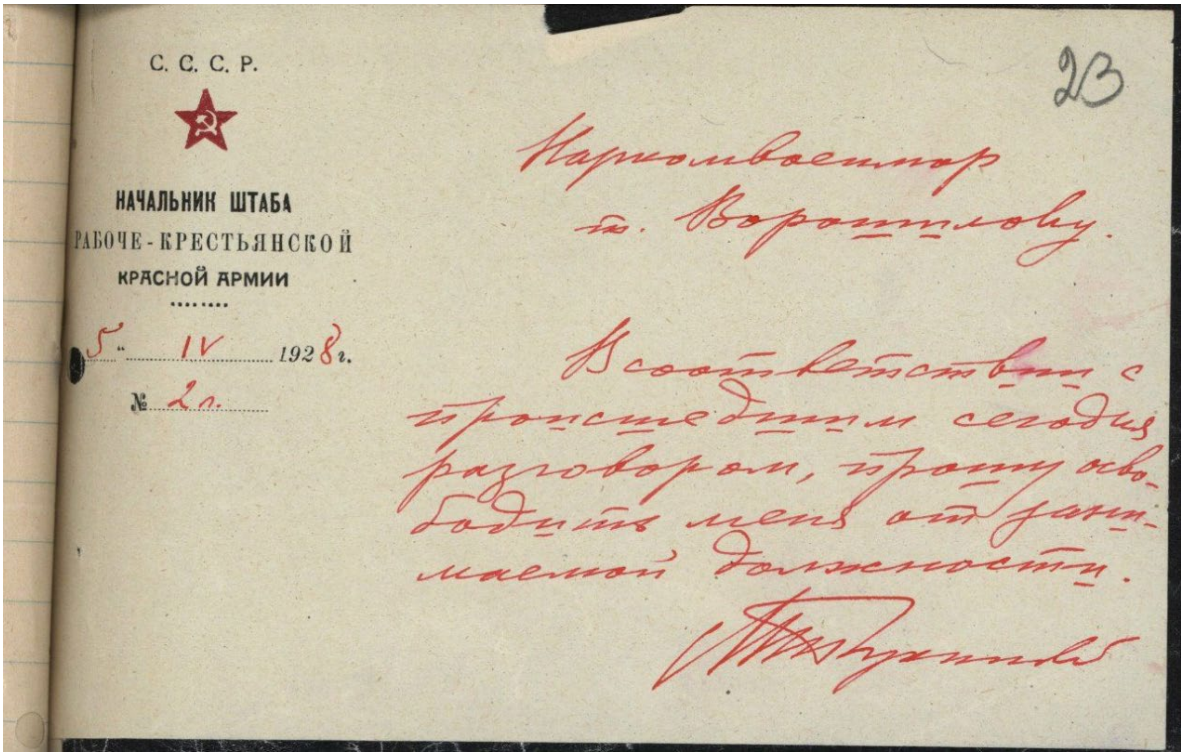 С. С. С. Р.
НАЧАЛЬНИК ШТАБА
РАБОЧЕ-КРЕСТЬЯНСКОЙ
КРАСНОЙ АРМИИ
5 " IV 1928 г.
№ 2л.
23
Наркомвоенмор
т. Ворошилову.
В соответствии с
происшедшим сегодня
разговором, прошу осво-
бодить меня от зани-
маемой должности.
МТухачевский